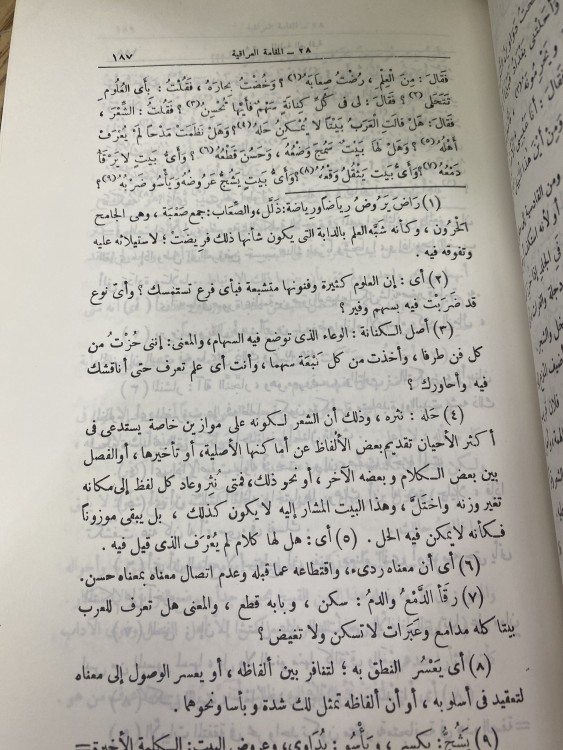 ٢٨ – المقامة العراقية ١٨٧
فَقَالَ : مِنَ الْعِلْمِ ، رُضْتُ صِعَابَهُ (١) ؟ وَخُضْتُ بِحَارَهُ ، فَقُلْتُ : بِأَىِّ الْعُلُومِ
تَتَحَلَّى (٢) ؟ فَقَالَ : لِى فِى كُلِّ كِنَانَةٍ سَهْمٌ فَأَيَّهَا تُحْسِنُ (٣) ؟ فَقُلْتُ : الشِّعْرَ ،
فَقَالَ : هَلْ قَالَتِ الْعَرَبُ بَيْتًا لَا يُمْكِنُ حَلُّهُ (٤) ؟ وَهَلْ نَظَمَتْ مَدْحًا لَمْ يُعْرَفْ
أَهْلُهُ (٥) ؟ وَهَلْ لَهَا بَيْتٌ سَمُجَ وَضْعُهُ ، وَحَسُنَ قَطْعُهُ (٦) ؟ وَأَىُّ بَيْتٍ لَا يَرْقَأُ
دَمْعُهُ (٧) ؟ وَأَىُّ بَيْتٍ يَثْقُلُ وَقْعُهُ (٨) ؟ وَأَىُّ بَيْتٍ يَشُجُّ عَرُوضُهُ وَيَأْسُو ضَرْبُهُ (٩) ؟
(١) رَاضَ يَرُوضُ رِيَاضًا وَرِيَاضَةً : ذَلَّلَ ، وَالصِّعَابُ : جمع صَعْبَة ، وهى الجامح
الحَرُون ، وكأنه شبَّه العلم بالدابة التى يكون شأنها ذلك فرِيضَتْ ؛ لاستيلائه عليه
وتفوقه فيه .
(٢) أى : إن العلوم كثيرة وفنونها متشعبة فبأى فرع تستمسك ؟ وأىِّ نوع
قد ضَرَبْتَ فيه بسهم وفير ؟
(٣) أصل الكنانة : الوعاء الذى توضع فيه السهام ، والمعنى : إننى حُزْتُ من
كل فن طرفا ، وأخذت من كل نَبْعَة سهما ، وأنت أى علم تعرف حتى أناقشك
فيه وأحاورك ؟
(٤) حَلُّه : نثره ، وذلك أن الشعر لكونه على موازين خاصة يستدعى فى
أكثر الأحيان تقديم بعض الألفاظ عن أماكنها الأصلية ، أو تأخيرها ، أو الفصل
بين بعض الكلام وبعضه الآخر ، أو نحو ذلك ، فمتى نُثِرَ وعاد كل لفظ إلى مكانه
تغير وزنه واختَلَّ ، وهذا البيت المشار إليه لا يكون كذلك ، بل يبقى موزوناً
فكأنه لا يمكن فيه الحل . (٥) أى : هل لها كلام لم يُعْرَف الذى قيل فيه .
(٦) أى أن معناه ردىء ، واقتطاعه عما قبله وعدم اتصال معناه بمعناه حسن .
(٧) رَقَأَ الدَّمْعُ والدمُ : سكن ، وبابه قطع ، والمعنى هل تعرف للعرب
بيتا كله مدامع وعَبَرَات لا تسكن ولا تغيض ؟
(٨) أى يَعْسُرُ النطق به ؛ لتنافر بين ألفاظه ، أو يعسر الوصول إلى معناه
لتعقيد فى أسلوبه ، أو أن ألفاظه تمثل لك شدة وبأسا ونحوهما .
(٩) يَشُجُّ : يكسر ، ويَأْسُو : يُدَاوِى ، وعروض البيت : الكلمة الأخيرة =